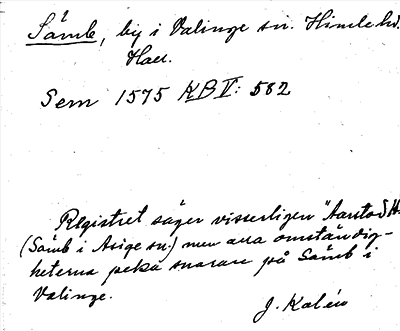 Sämb, by i Valinge sn. Himle hd.
Hall.
Sem 1575 KB V: 582
Registret säger visserligen "Aarstad H.
(Sämb i Asige sn.) men alla omständig-
heterna peka snarare på Sämb i
Valinge.
J. Kalén